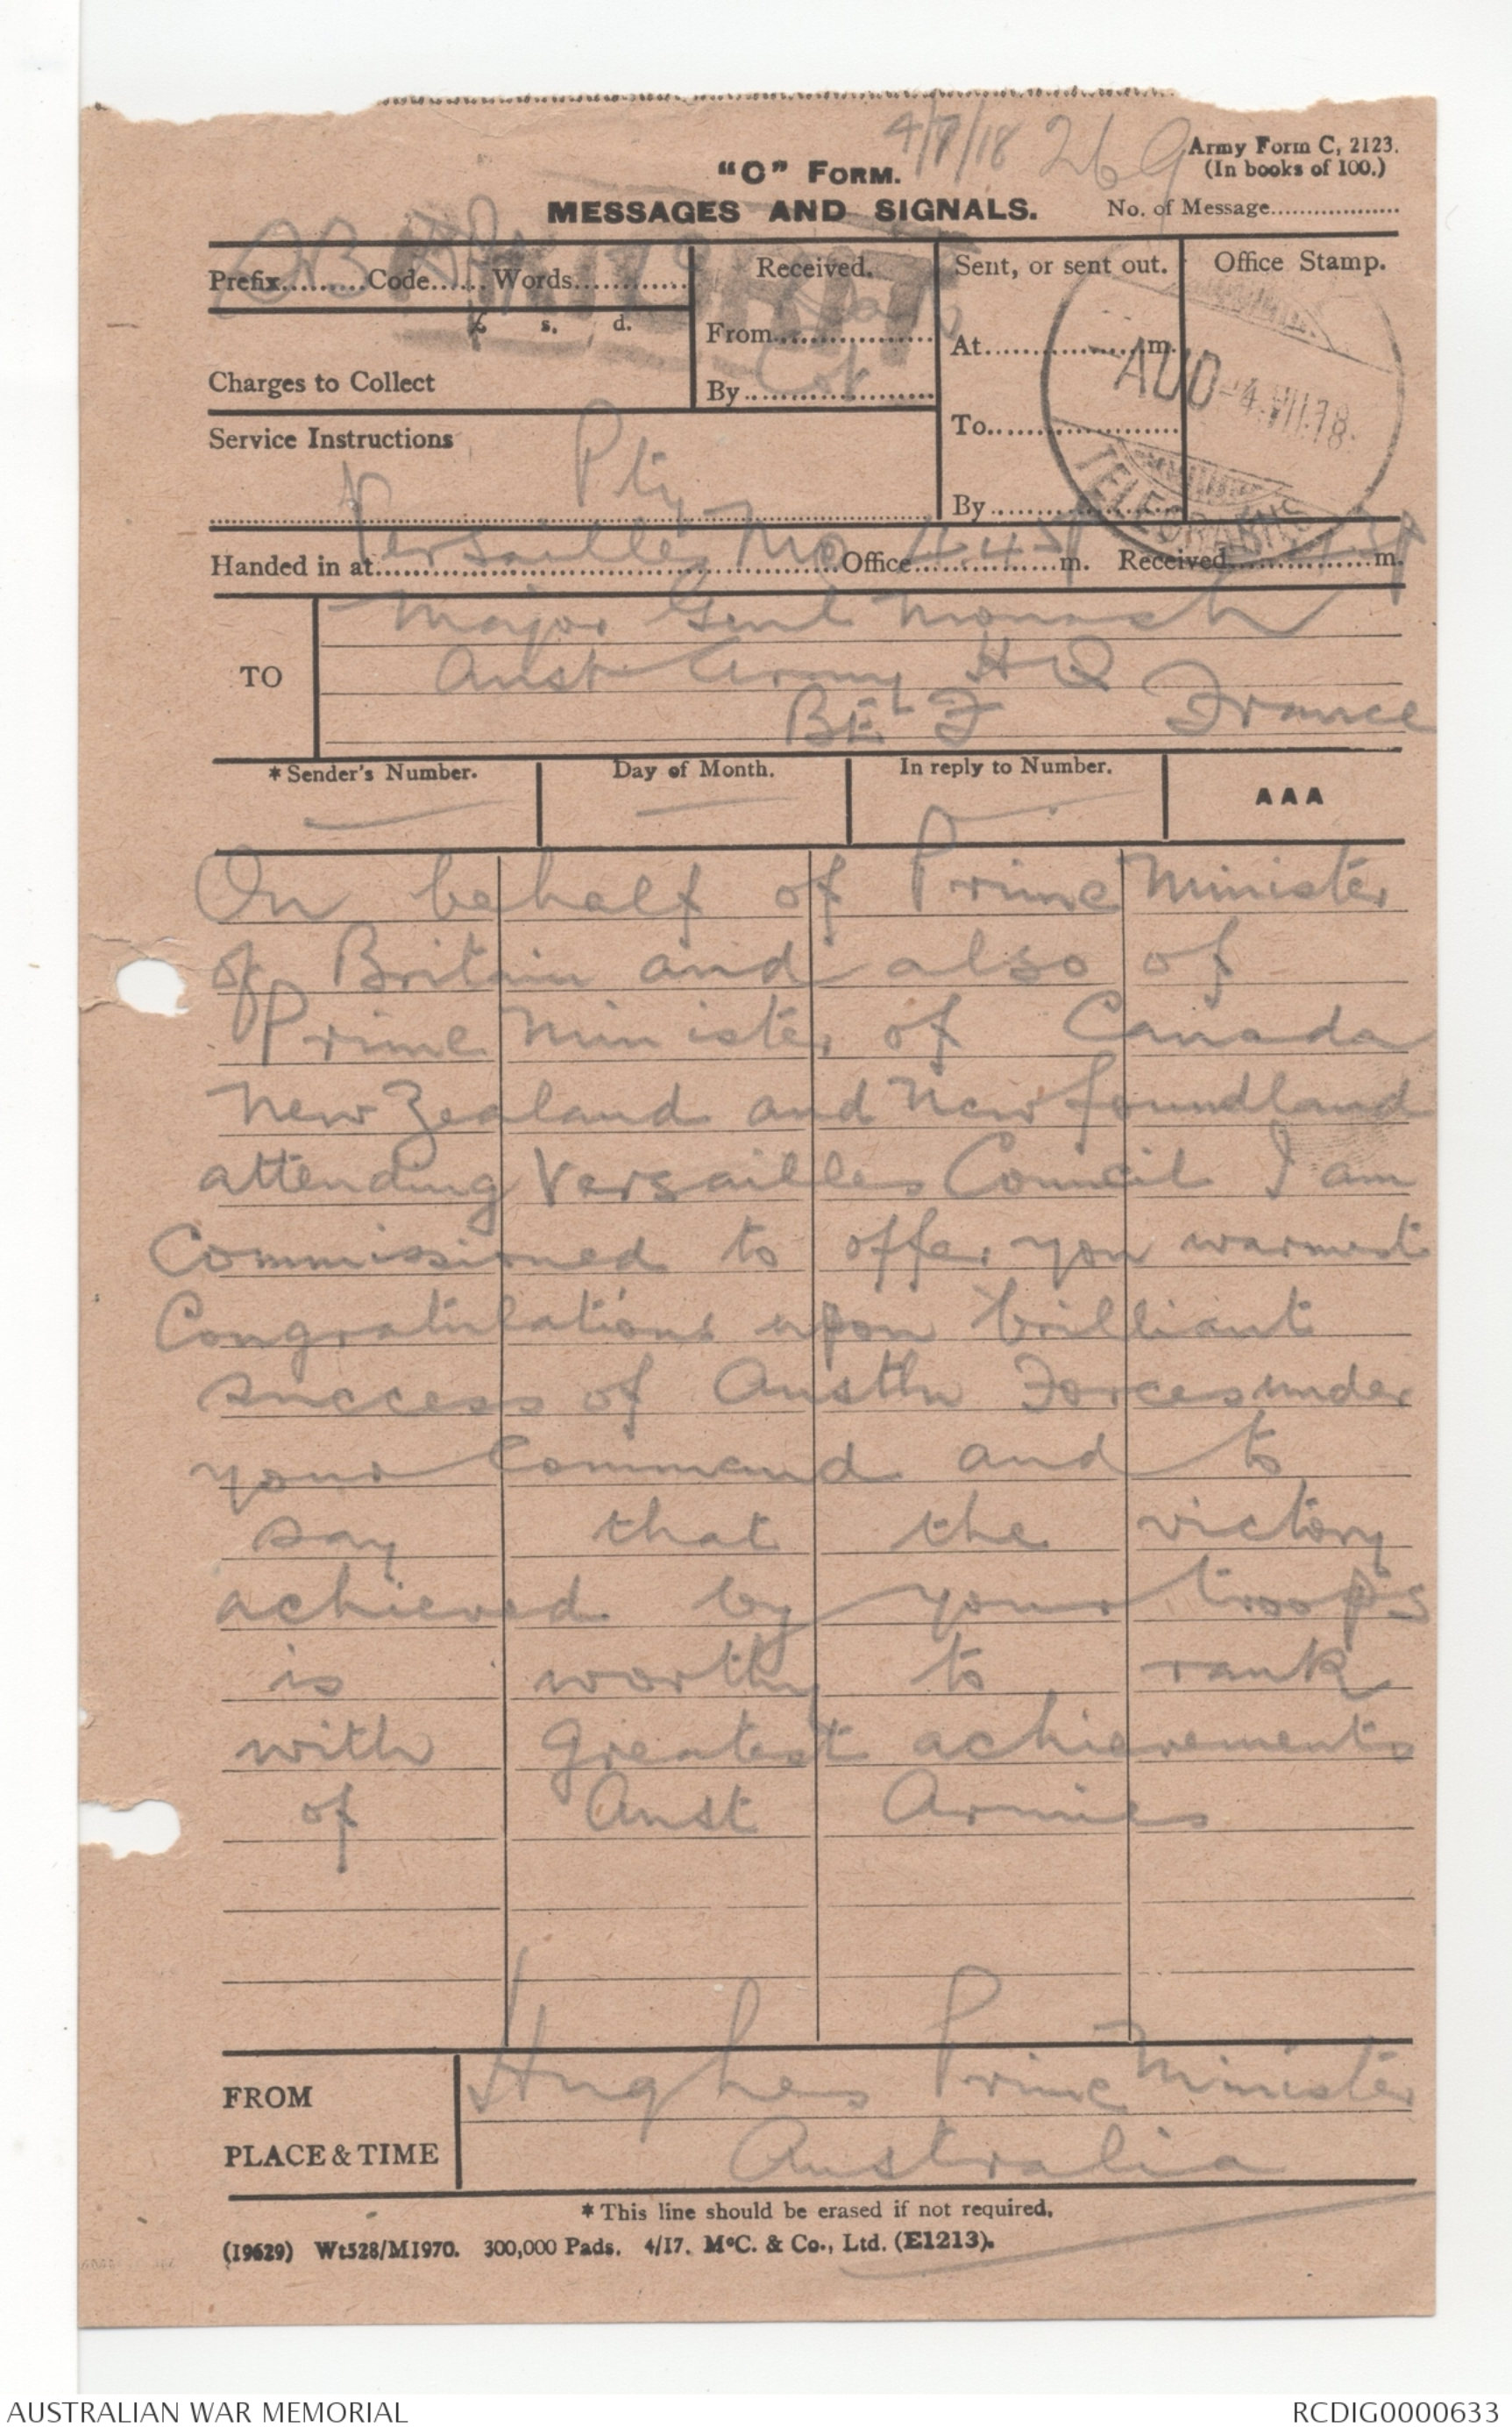 4/7/18 269
Army Form C, 2123.
(In books of 100.)
"C" FORM.
MESSAGES AND SIGNALS.
No. of Message
Prefix Code Words
Received.
Sent, or sent out.
Office Stamp.
£ s. d.
From
At m.
AUO -4.VII.18.
TELEGRAPHS
Charges to Collect
By
To
Service Instructions
Pty
By
Handed in at Versailles Office 4.45P m. Received m.
TO
Major Genl Monash
Aust Army HQ
BEF France
*Sender's Number.
Day of Month.
In reply to Number.
AAA
On behalf of Prime Minister
of Britain and also of
Prime Minister of Canada
New Zealand and Newfoundland
attending Versailles Council I am
Commissioned to offer you warmest
Congratulations upon brilliant
success of Austln Forces under
your Command and to
say that the victory
achieved by your troops
is worthy to rank
with Greatest achievements
of Aust Armies
FROM
Hughes Prime Minister
PLACE & TIME
Australia
*This line should be erased if not required.
(19629) Wt528/M1970. 300,000 Pads. 4/17. McC. & Co., Ltd. (E1213).
AUSTRALIAN WAR MEMORIAL
RCDIG0000633